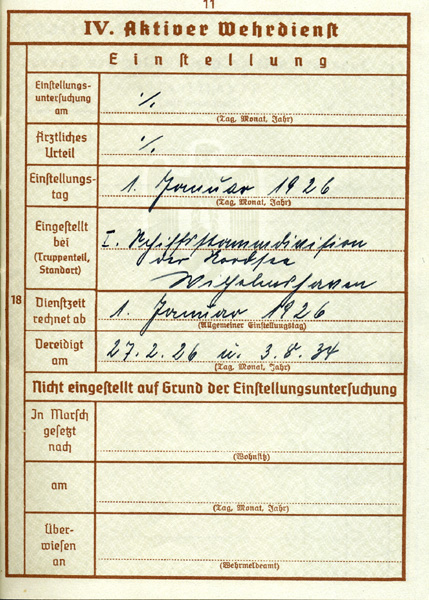 11
IV. Aktiver Wehrdienst
Einstellung
Einstellungs-
untersuchung
am
·/.
(Tag, Monat, Jahr)
Ärztliches
Urteil
·/.
Einstellungs-
tag
1. Januar 1926
(Tag, Monat, Jahr)
Eingestellt
bei
(Truppenteil,
Standort)
I. Schiffsstammdivision
der Nordsee
Wilhelmshaven
18
Dienstzeit
rechnet ab
1. Januar 1926
(Allgemeiner Einstellungstag)
Vereidigt
am
27.2.26 u. 3.8.34
(Tag, Monat, Jahr)
Nicht eingestellt auf Grund der Einstellungsuntersuchung
In Marsch
gesetzt
nach
(Wohnsitz)
am
(Tag, Monat, Jahr)
Über-
wiesen
an
(Wehrmeldeamt)